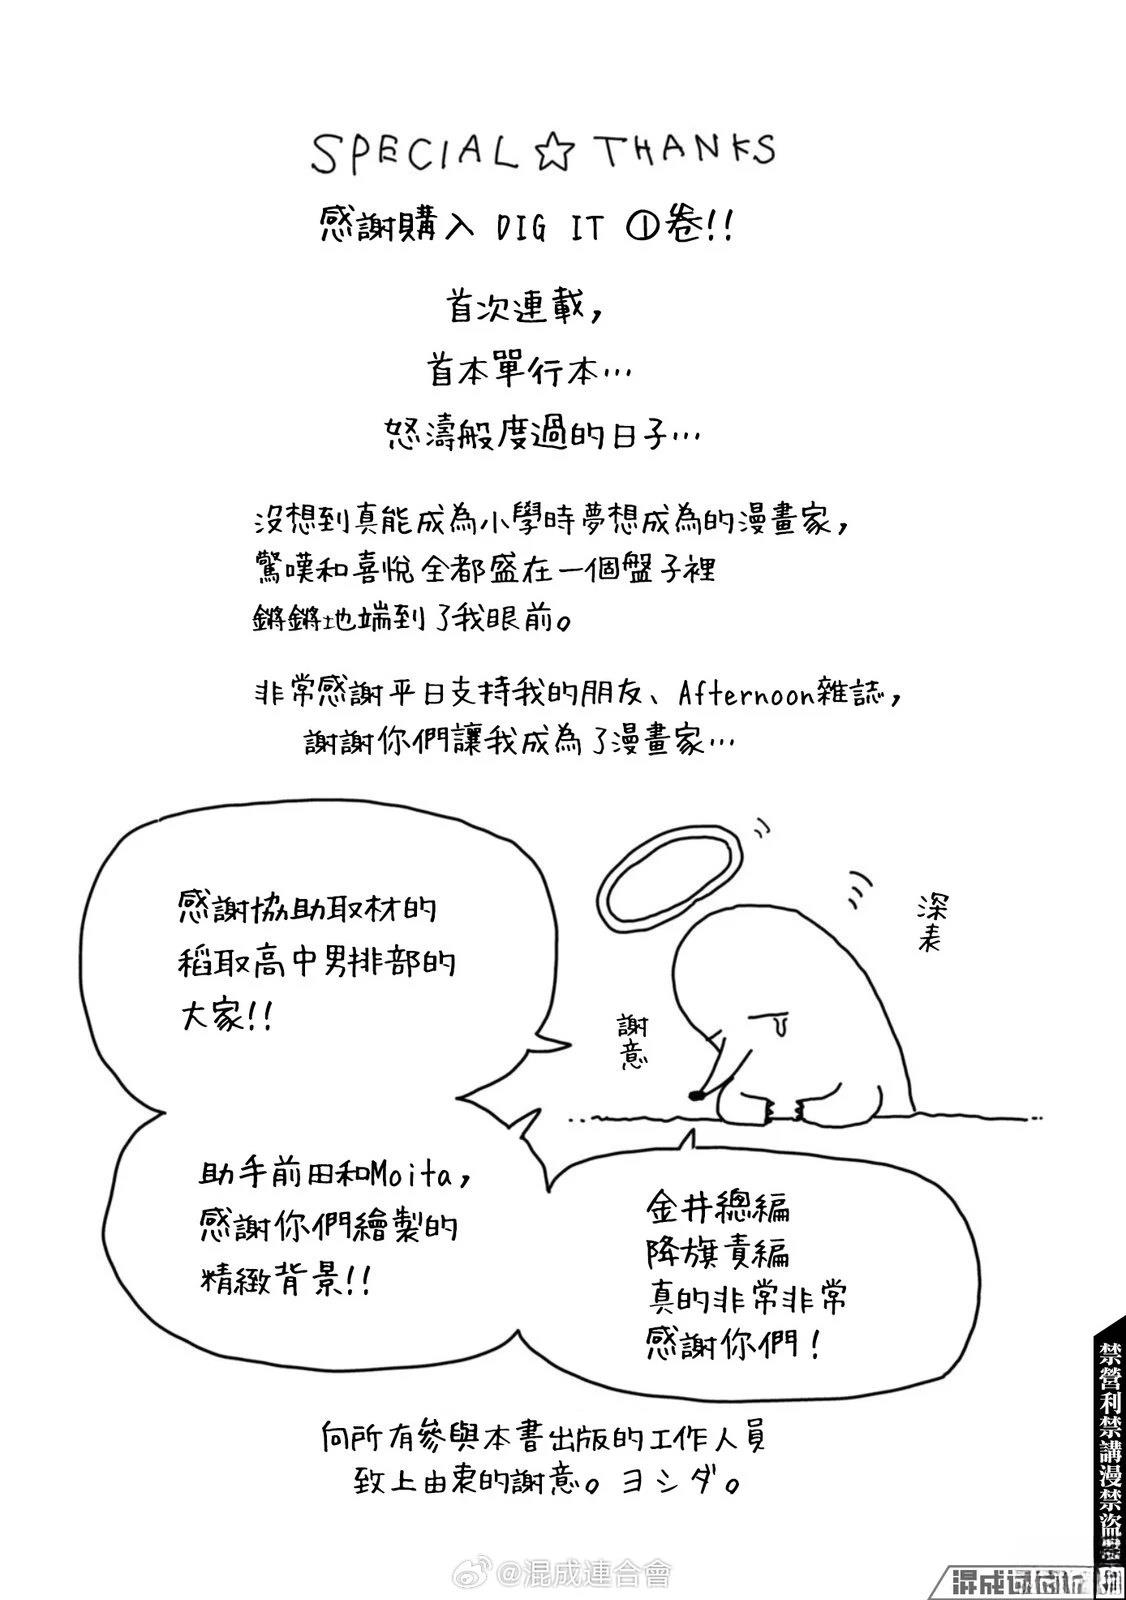 SPECIAL☆THANKS
感謝購入 DIG IT ①卷!!
首次連載，
首本單行本…
怒濤般度過的日子…
沒想到真能成為小學時夢想成為的漫畫家，
驚嘆和喜悅全都盛在一個盤子裡
鏘鏘地端到了我眼前。
非常感謝平日支持我的朋友、Afternoon雜誌，
謝謝你們讓我成為了漫畫家…
感謝協助取材的
稻取高中男排部的
大家!!
深表
謝意
助手前田和Moita，
感謝你們繪製的
精緻背景!!
金井總編
降旗責編
真的非常非常
感謝你們！
向所有參與本書出版的工作人員
致上由衷的謝意。ヨシダ。
禁營利禁講漫禁盜
@混成連合會